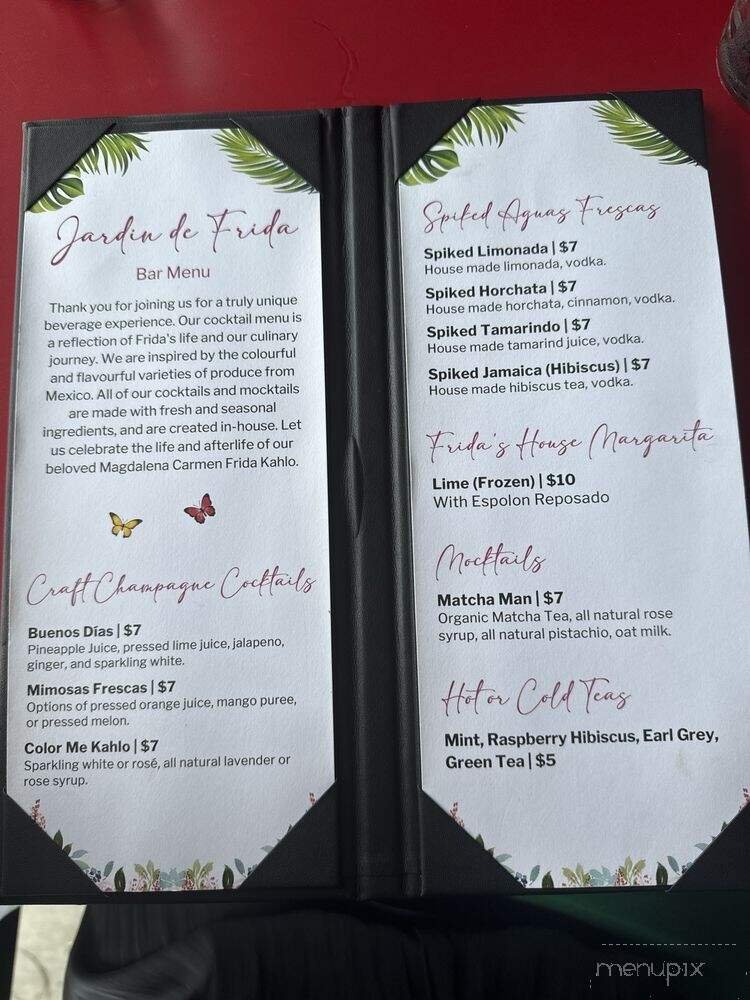 Jardin de Frida
Bar Menu
Thank you for joining us for a truly unique
beverage experience. Our cocktail menu is
a reflection of Frida's life and our culinary
journey. We are inspired by the colourful
and flavourful varieties of produce from
Mexico. All of our cocktails and mocktails
are made with fresh and seasonal
ingredients, and are created in-house. Let
us celebrate the life and afterlife of our
beloved Magdalena Carmen Frida Kahlo.
Craft Champagne Cocktails
Buenos Días | $7
Pineapple Juice, pressed lime juice, jalapeno,
ginger, and sparkling white.
Mimosas Frescas | $7
Options of pressed orange juice, mango puree,
or pressed melon.
Color Me Kahlo | $7
Sparkling white or rosé, all natural lavender or
rose syrup.
Spiked Aguas Frescas
Spiked Limonada | $7
House made limonada, vodka.
Spiked Horchata | $7
House made horchata, cinnamon, vodka.
Spiked Tamarindo | $7
House made tamarind juice, vodka.
Spiked Jamaica (Hibiscus) | $7
House made hibiscus tea, vodka.
Frida's House Margarita
Lime (Frozen) | $10
With Espolon Reposado
Mocktails
Matcha Man | $7
Organic Matcha Tea, all natural rose
syrup, all natural pistachio, oat milk.
Hot or Cold Teas
Mint, Raspberry Hibiscus, Earl Grey,
Green Tea | $5
menupix